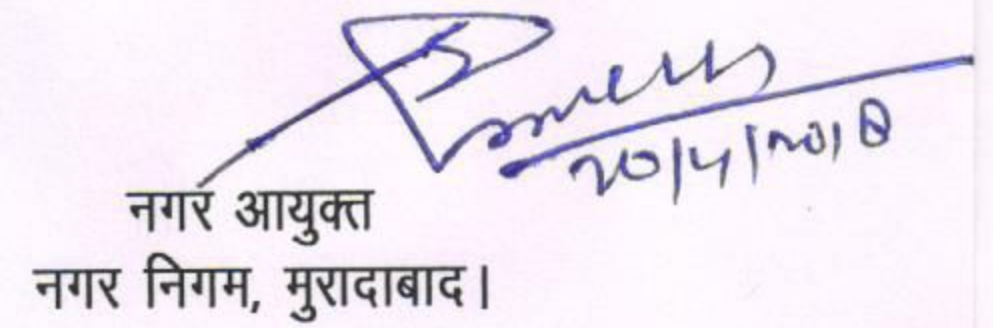 20/4/2018
नगर आयुक्त
नगर निगम, मुरादाबाद।